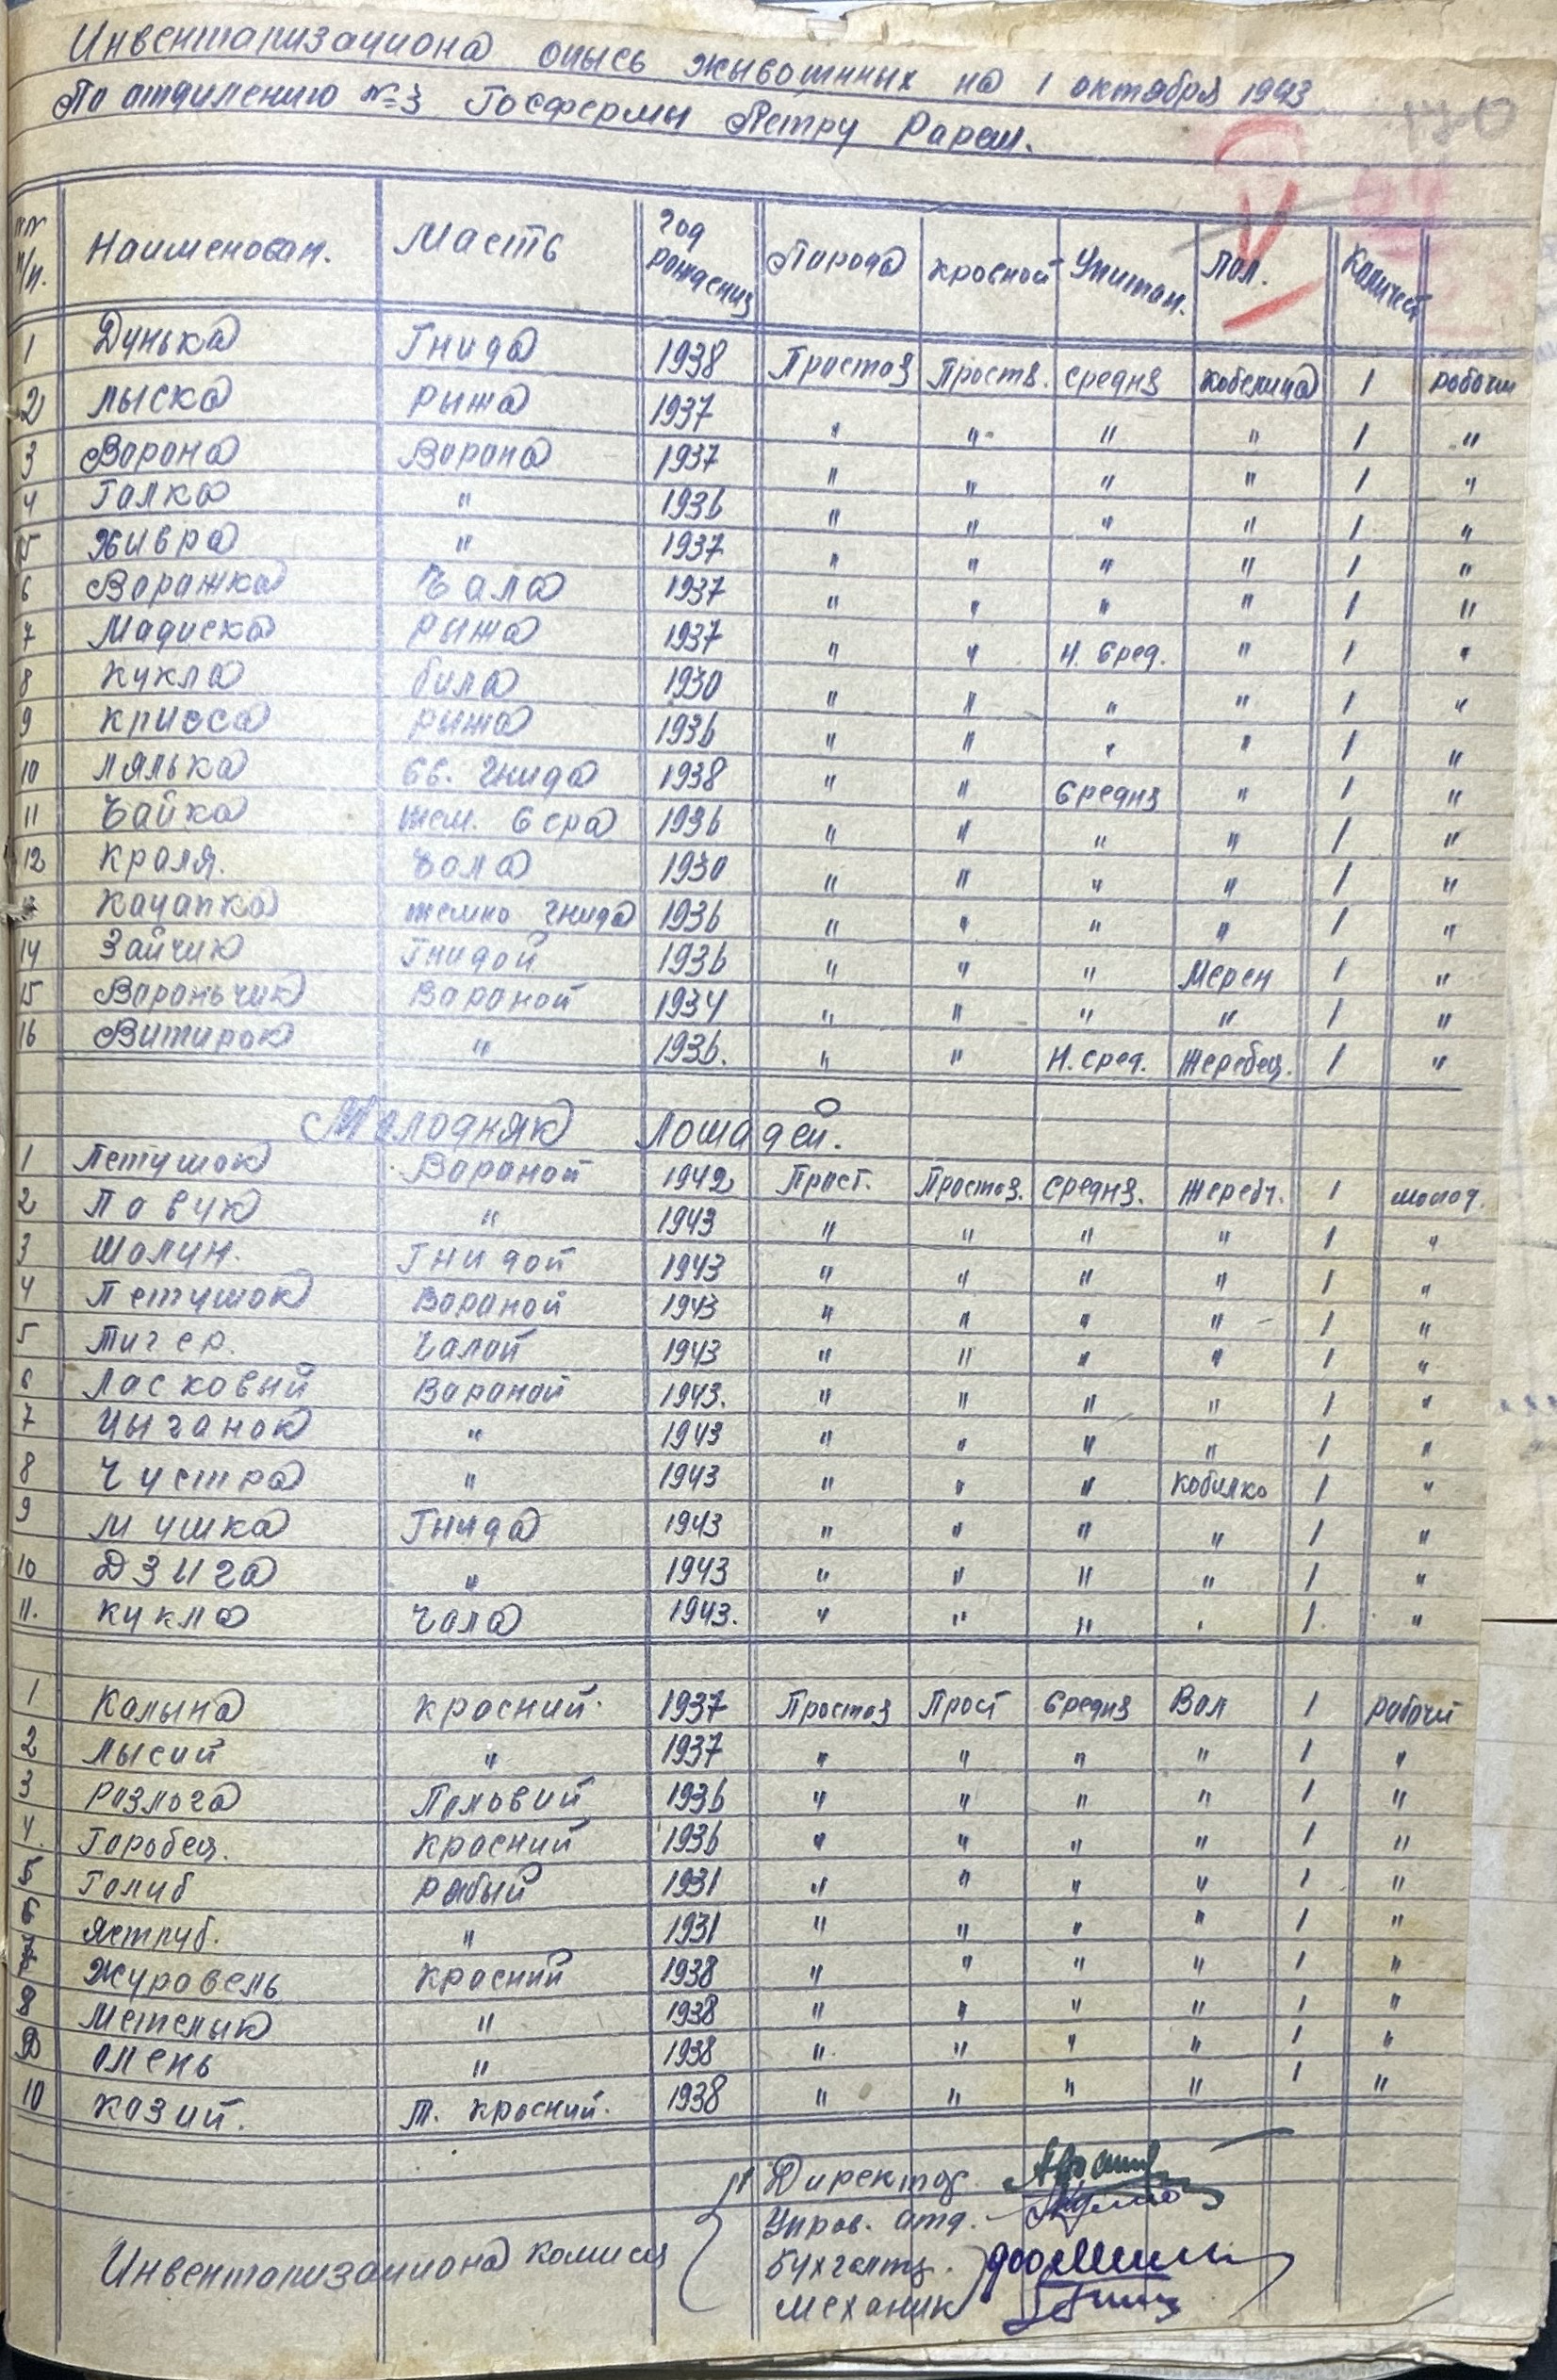 Инвентаризациона опысь жывотнных на 1 октября 1943
По отдилению №3 Госфермы Петру Рареш.
130
№№ п/п. Наименован. Масть год рождения Парода кровной Упитан. Пол. Количест
1 Дунька Гнида 1938 Простоя Простя. средня кобелица 1 рабочи
2 Лыска рыжа 1937 " " " " 1 "
3 Ворона Ворона 1937 " " " " 1 "
4 Галка " 1936 " " " " 1 "
5 Хивра " 1937 " " " " 1 "
6 Воражка Чала 1937 " " " " 1 "
7 Мадиска рыжа 1937 " " Н. Сред. " 1 "
8 Кукла била 1930 " " " " 1 "
9 Крисса рыжа 1936 " " " " 1 "
10 Лялька Св. гнида 1938 " " Средня " 1 "
11 Чайка тем. Сера 1936 " " " " 1 "
12 Краля. Чала 1930 " " " " 1 "
Кацапка темно гнида 1936 " " " " 1 "
14 Зайчик Гнидой 1936 " " " Мерен 1 "
15 Вараньчик Вараной 1934 " " " " 1 "
16 Витирок " 1936. " " Н. сред. Жеребец. 1 "
Молодняк Лошадей.
1 Петушок Вараной 1942 Прост. Простоя. средня. Жеребч. 1 молод.
2 Павук " 1943 " " " " 1 "
3 Шалун. Гнидой 1943 " " " " 1 "
4 Петушок Вараной 1943 " " " " 1 "
5 Тигер. Чалой 1943 " " " " 1 "
6 Ласковый Вараной 1943. " " " " 1 "
7 Цыганок " 1943 " " " " 1 "
8 Чустра " 1943 " " " Кобилко 1 "
9 Мушка Гнида 1943 " " " " 1 "
10 Дзига " 1943 " " " " 1 "
11. Кукла Чала 1943. " " " " 1. "
1 Калына красний. 1937 Простоя Прост Средня Вол 1 рабочи
2 Лысий " 1937 " " " " 1 "
3 Розлога Половий 1936 " " " " 1 "
4. Горобец. красний 1936 " " " " 1 "
5 Голиб Рабый 1931 " " " " 1 "
6 Яструб. " 1931 " " " " 1 "
7 Журовель Красний 1938 " " " " 1 "
8 Метелык " 1938 " " " " 1 "
9 Олень " 1938 " " " " 1 "
10 Козий. т. красний. 1938 " " " " 1 "
Директор.
Управ. отд.
Инвентаризациона комисия Бухгалтер.
механик